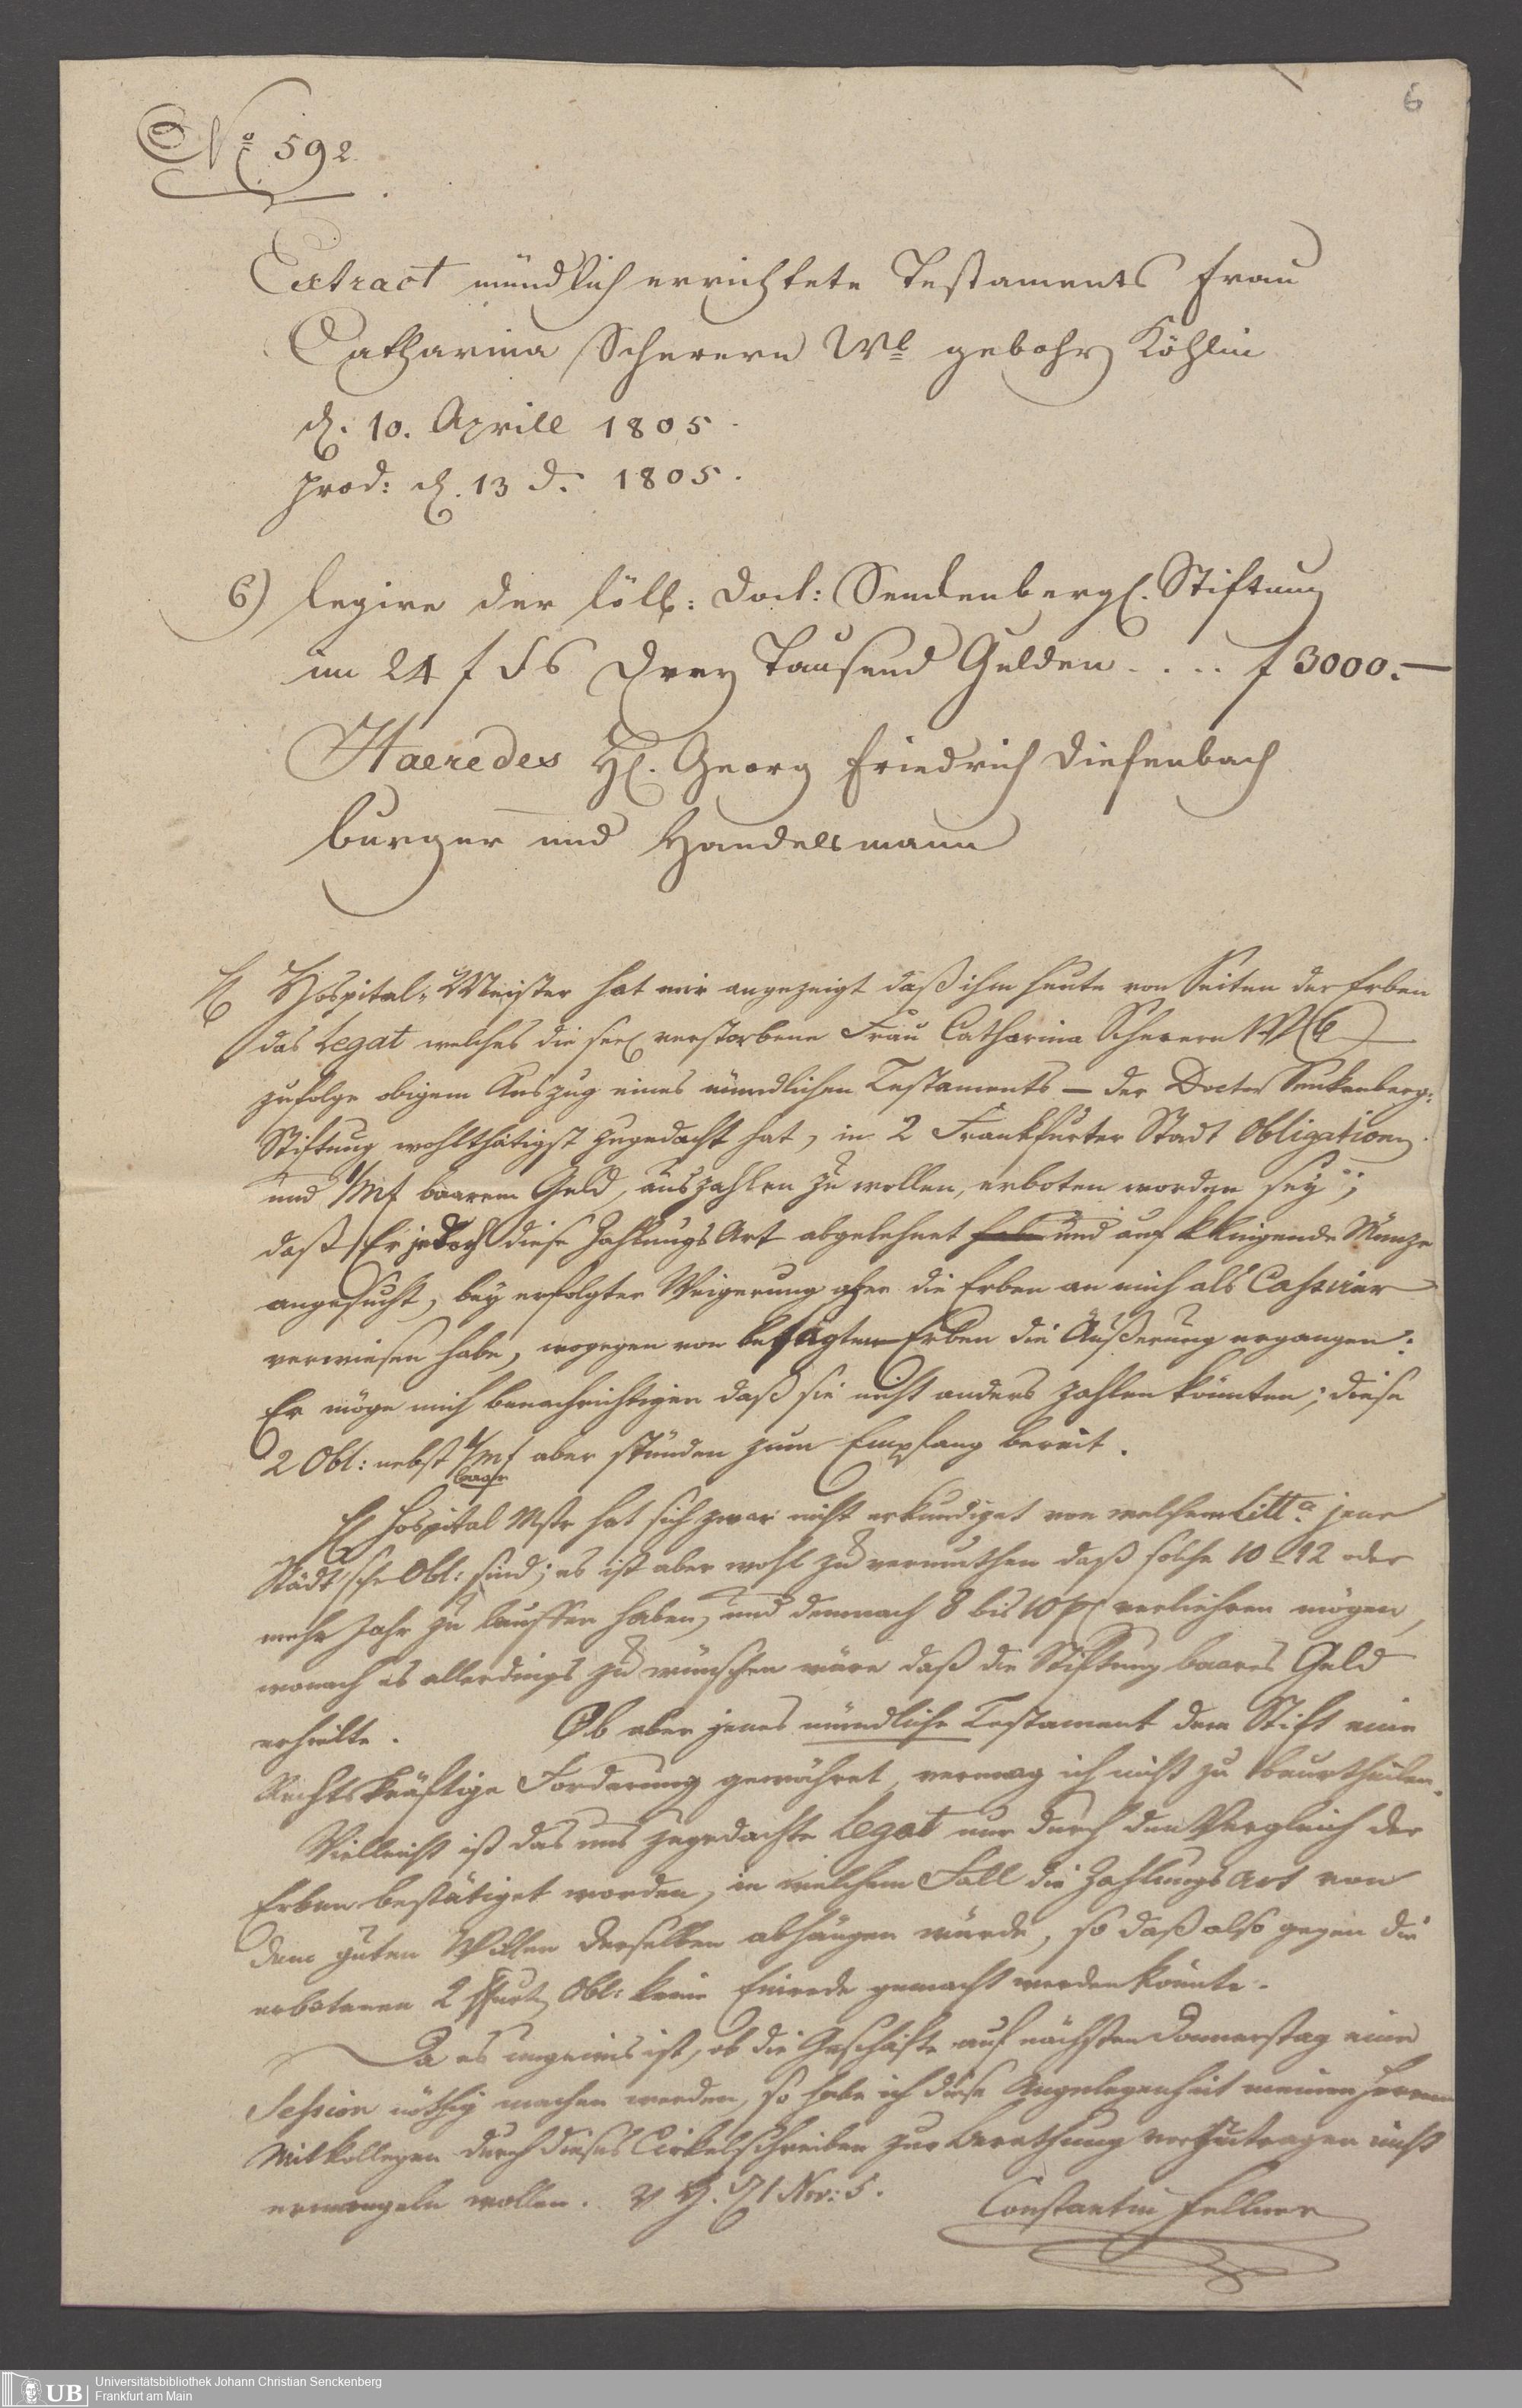 6
No 592.
Extract mündlich errichtete Testaments Frau
Catharina Scherern Wb gebohrn Köhlin
d. 10. Aprill 1805.
prod: d. 13 d. 1805.
6) legire der löbl: Doct: Senckenbergl. Stiftung
im 24 f Fs Drey Tausend Gulden .... f 3000.—
Haeredes H. Georg Friedrich Diefenbach
burger und Handelsmann
H Hospital-Meister hat mir angezeigt daß ihm heute von Seiten der Erben
das Legat welches die seel verstorbene Frau Catharina Scherern
zufolge obigem Auszug eines mündlichen Testaments — der Doctor Senkenberg:
Stiftung wohlthätigst zugedacht hat, in 2 Frankfurter Stadt Obligationen
und 1/mf baarem Geld, auszahlen zu wollen, erboten worden sey;
daß Er jedoch diese Zahlungs Art abgelehnet und auf klingende Münze
angesucht, bey erfolgter Weigerung aber die Erben an mich als Cassirier
verwiesen habe, wogegen von besagten Erben die Äußerung ergangen:
Er möge mich benachrichtigen daß sie nicht anders zahlen könnten; diese
2 Obl: nebst 1/mf baar aber stünden zum Empfang bereit.
H Hospital Mstr hat sich zwar nicht erkundiget von welchem Litta jene
Städtsche Obl: sind; es ist aber wohl zu vermuthen daß solche 10 - 12 oder
mehr Jahr zu lauffen haben, und demnach 8 bis 10 pC verliehren mögen,
wonach es allerdings zu wünschen wäre daß die Stiftung baares Geld
erhielte. Ob aber jenes mündliche Testament dem Stift eine
Rechtskräftige Forderung gewähret, vermag ich nicht zu beurtheilen.
Vielleicht ist das uns zugedachte Legat nur durch den Vergleich der
Erben bestätiget worden, in welchem Fall die Zahlungs Art von
dem guten Willen derselben abhängen würde, so daß also gegen die
erbotenen 2 Obl: keine Einrede gemacht werden könnte.
Da es ungewis ist, ob die Geschäfte auf nächsten Donnerstag eine
Session nöthig machen werden, so habe ich diese Angelegenheit meinen Herren
Mitkollegen durch dieses Cirkelschreiben zur Berathung vorzutragen nicht
ermangeln wollen. 1 Nov: 5. Constantin Fellner
UB Universitätsbibliothek Johann Christian Senckenberg
Frankfurt am Main